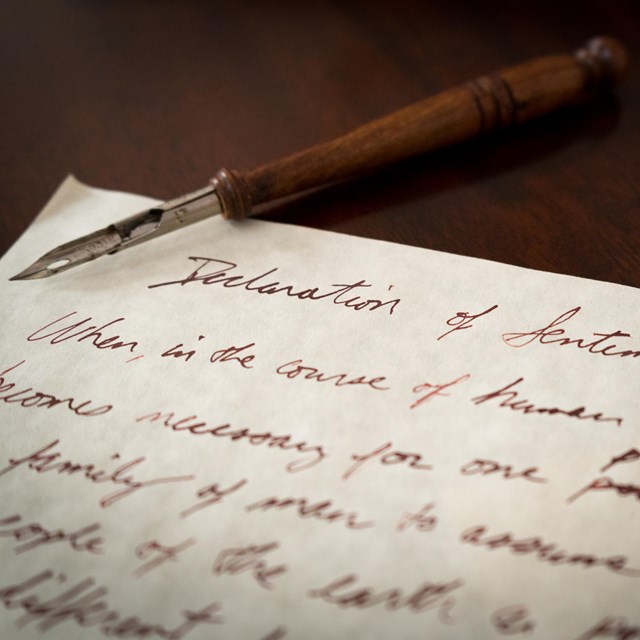 Declaration of Sentim
When, in the course of human
becomes necessary for one po
family of man to assume
eople of the earth a p
different